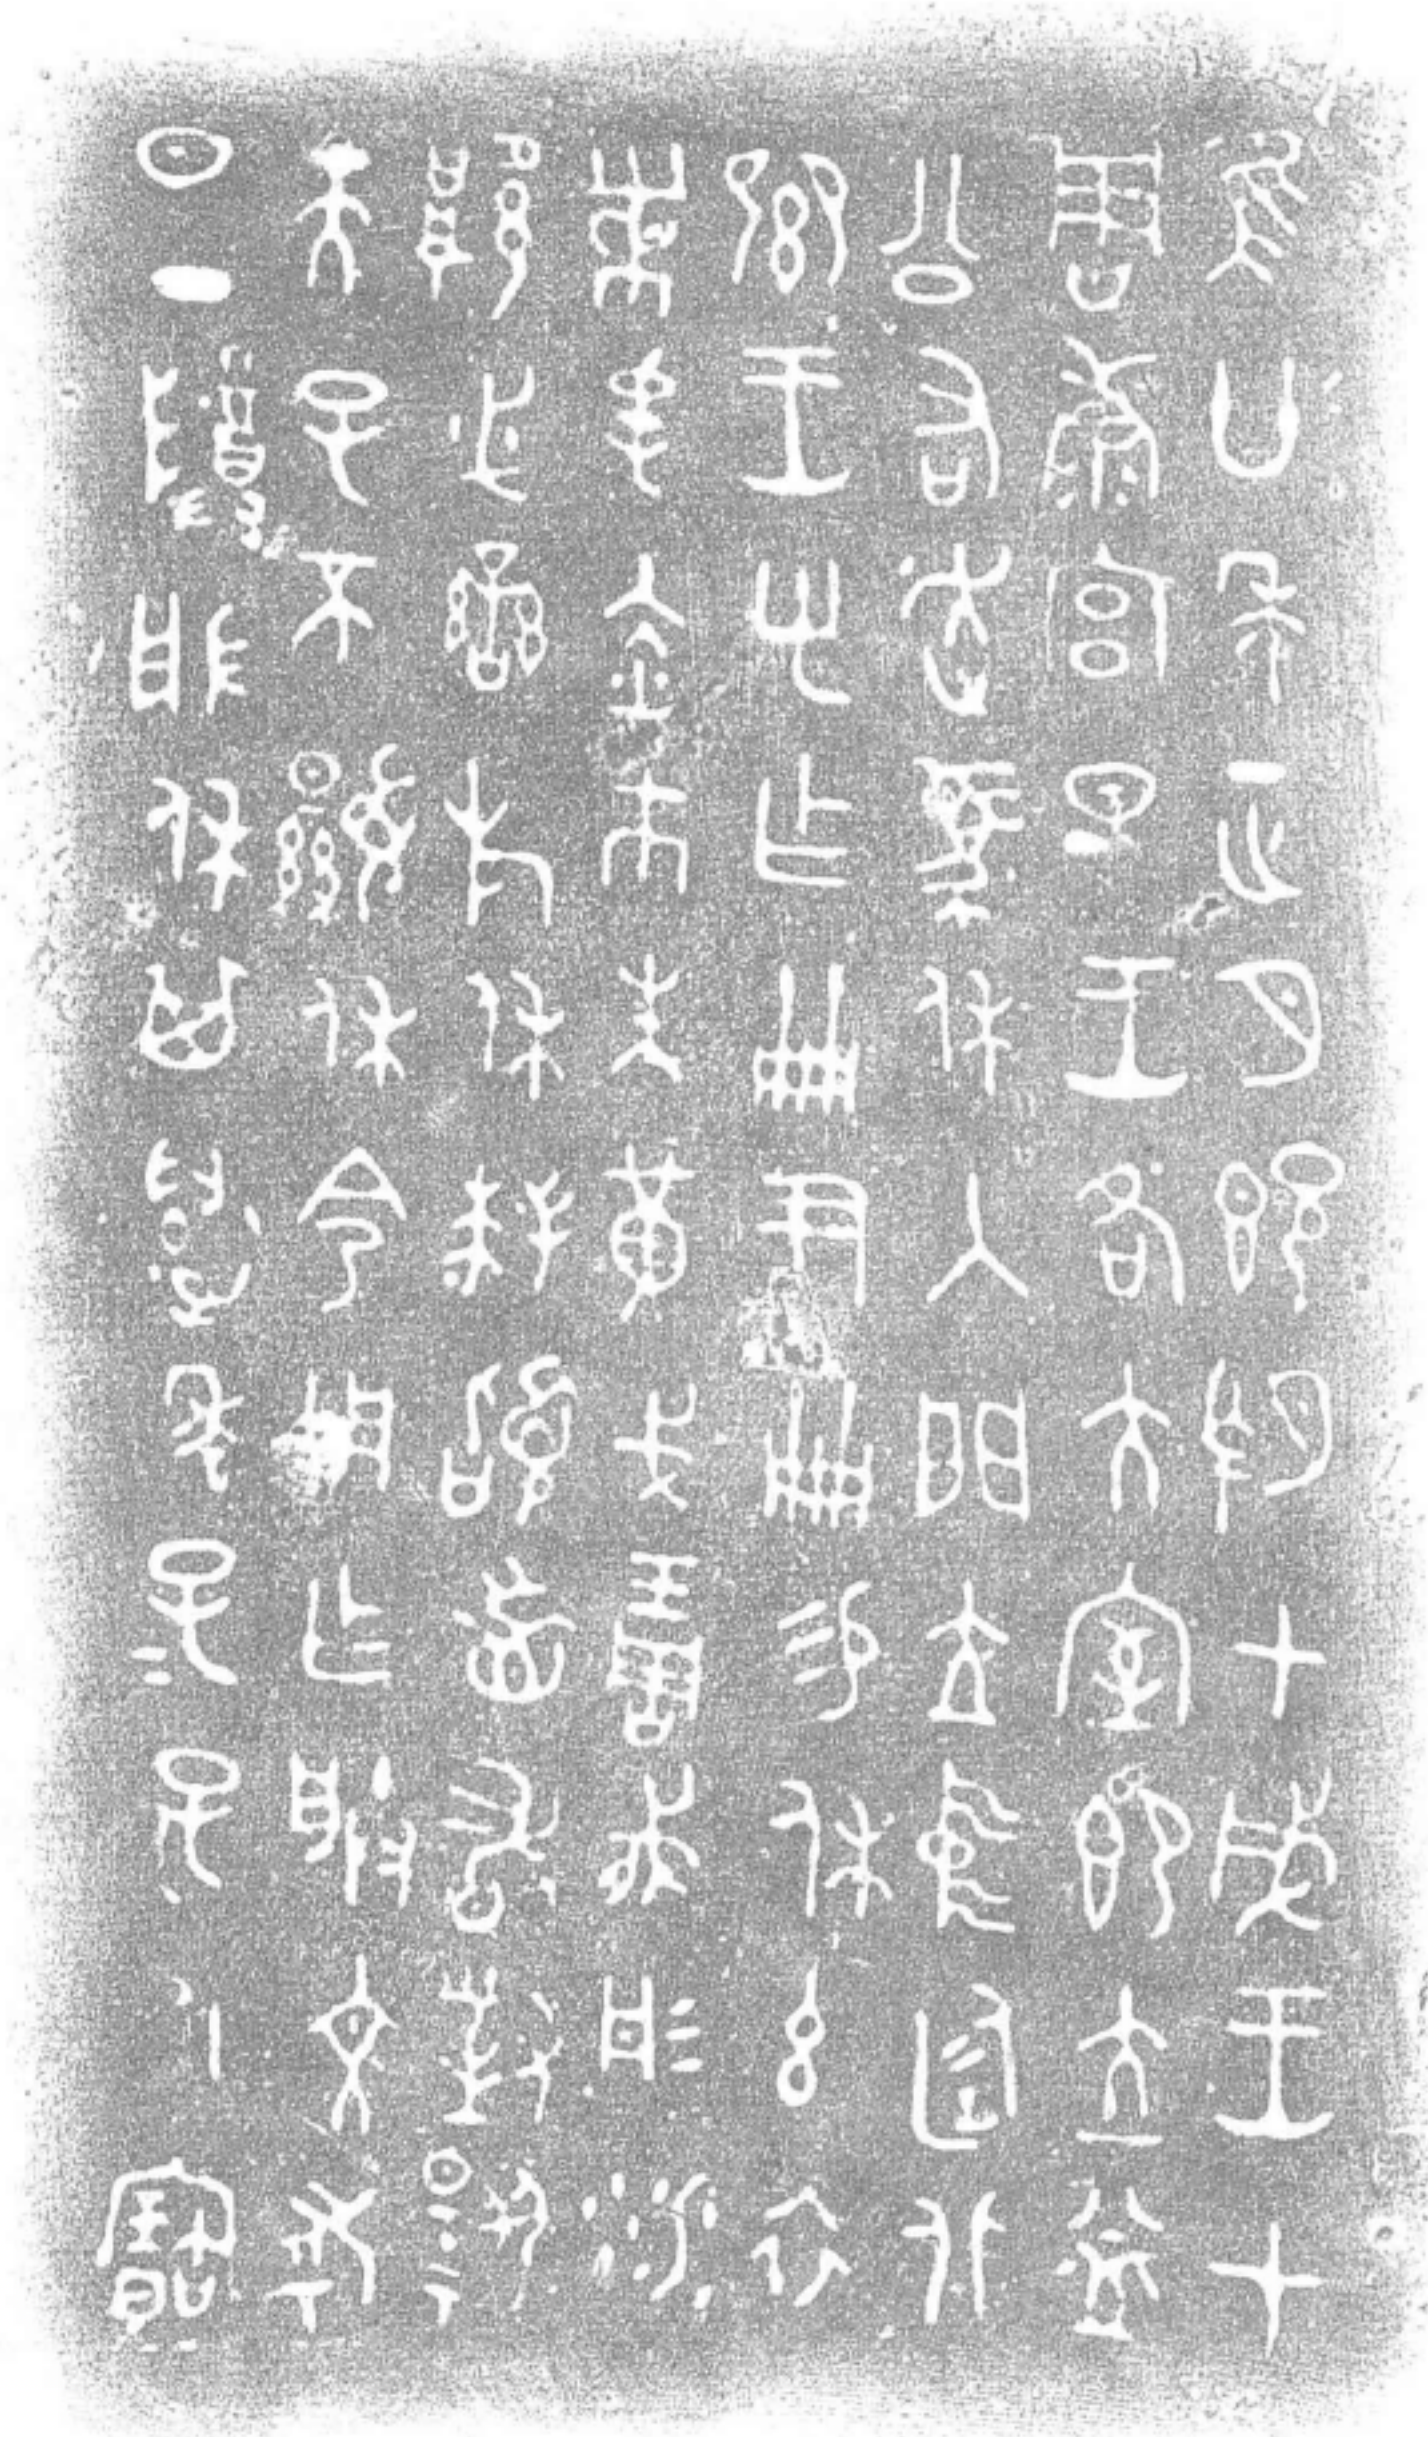 隹廿年正月既望甲戌王才
周康宮旦王各大室即立益
公右走馬休入門立中廷北
鄉王乎乍冊尹冊易休玄衣
黹屯赤市朱黃戈琱胾彤沙
厚必䜌㫃休拜𩒨首敢對揚
天子不顯休令用乍朕文考
日丁尊般休其萬年子〓孫〓永寶